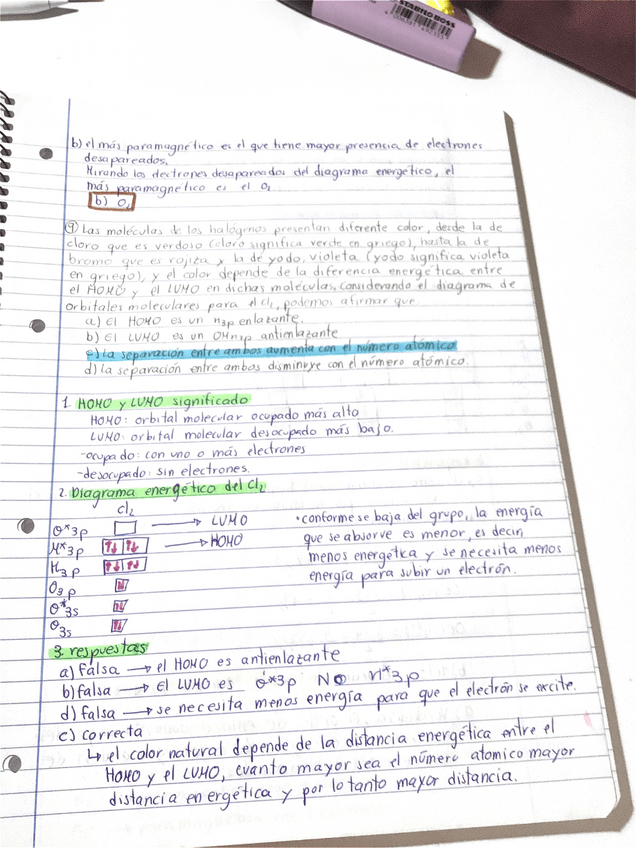 STABILO BOSS
b) el más paramagnético es el que tiene mayor presencia de electrones
desapareados.
Mirando los electrones desapareados del diagrama energético, el
más paramagnético es el O₂
b) O₂
9) Las moléculas de los halógenos presentan diferente color, desde la de
cloro que es verdoso (cloro significa verde en griego), hasta la de
bromo que es rojiza y la de yodo, violeta (yodo significa violeta
en griego), y el color depende de la diferencia energética entre
el HOMO y el LUMO en dichas moléculas, considerando el diagrama de
orbitales moleculares para el Cl₂, podemos afirmar que
a) El HOMO es un π3p enlazante.
b) El LUMO es un OMπ3p antienlazante
c) la separación entre ambos aumenta con el número atómico
d) la separación entre ambos disminuye con el número atómico.
1. HOMO y LUMO significado
HOMO: orbital molecular ocupado más alto
LUMO: orbital molecular desocupado más bajo.
-ocupado: con uno o más electrones
-desocupado: sin electrones.
2. Diagrama energético del Cl₂
Cl₂
σ*3p → LUMO
π*3p ↑↓ ↑↓ → HOMO
π3p ↑↓ ↑↓
σ3p ↑↓
σ*3s ↑↓
σ3s ↑↓
• conforme se baja del grupo, la energía
que se absorve es menor, es decir,
menos energética y se necesita menos
energía para subir un electrón.
3. respuestas
a) falsa → el HOMO es antienlazante
b) falsa → El LUMO es σ*3p NO π*3p
d) falsa → se necesita menos energía para que el electrón se excite.
c) correcta
↳ el color natural depende de la distancia energética entre el
HOMO y el LUMO, cuanto mayor sea el número atomico mayor
distancia energética y por lo tanto mayor distancia.